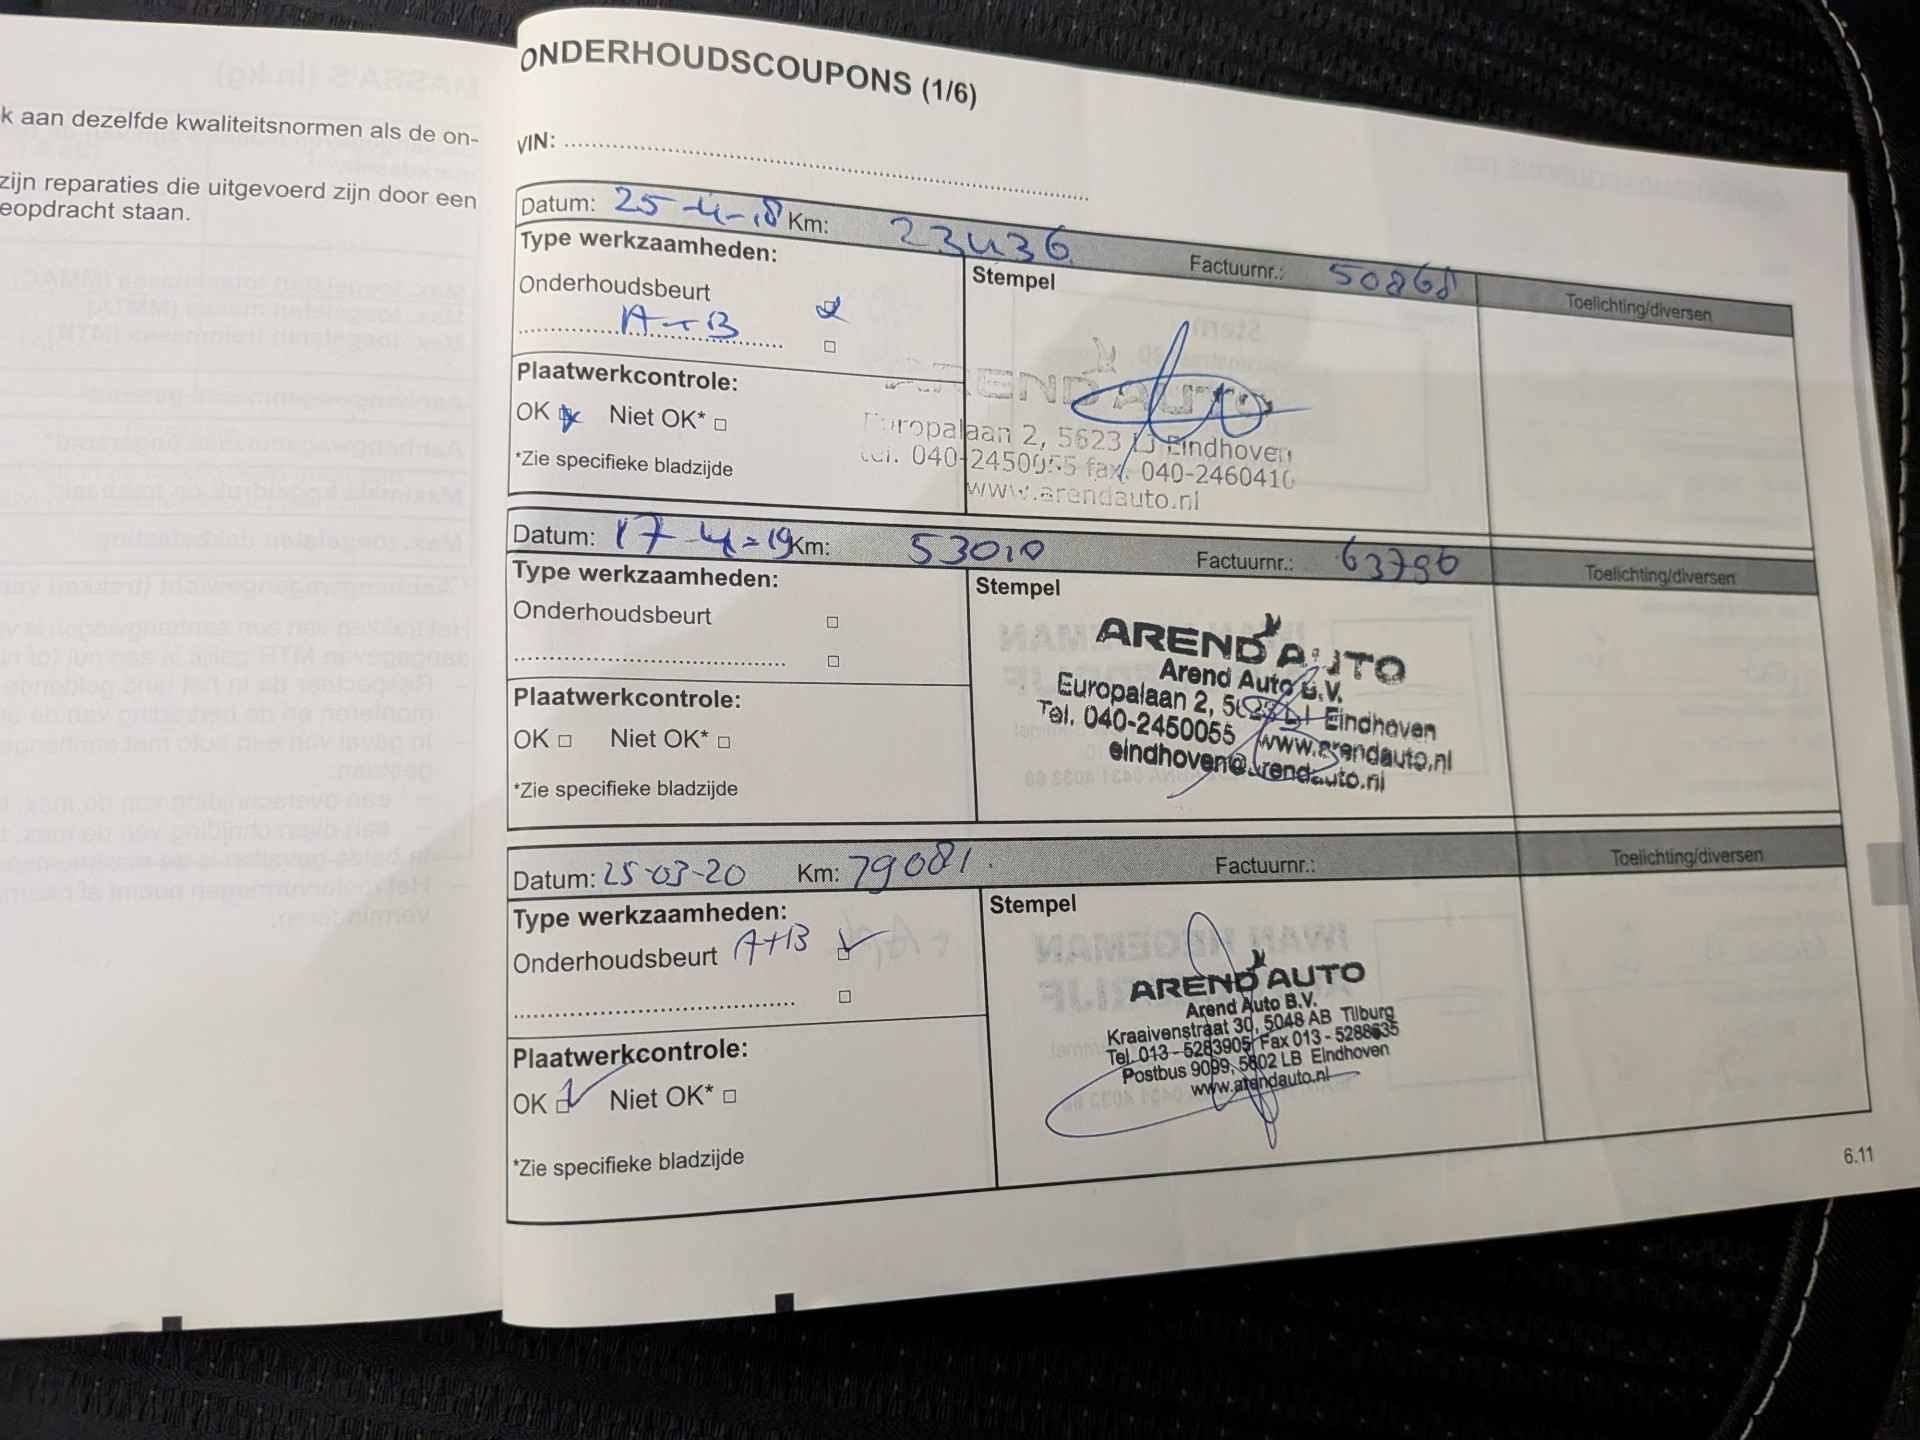 k aan dezelfde kwaliteitsnormen als de on-
zijn reparaties die uitgevoerd zijn door een
eopdracht staan.
ONDERHOUDSCOUPONS (1/6)
VIN:
Datum: 25-4-18 Km: 23436 Factuurnr.: 50868 Toelichting/diversen
Type werkzaamheden:
Stempel
Onderhoudsbeurt
A+B
Plaatwerkcontrole:
OK Niet OK*
*Zie specifieke bladzijde
AREND AUTO
Europalaan 2, 5623 LJ Eindhoven
tel. 040-2450055 fax. 040-2460410
www.arendauto.nl
Datum: 17-4-19 Km: 53010 Factuurnr.: 63796 Toelichting/diversen
Type werkzaamheden:
Stempel
Onderhoudsbeurt
Plaatwerkcontrole:
OK Niet OK*
*Zie specifieke bladzijde
AREND AUTO
Arend Auto B.V.
Europalaan 2, 5623 LJ Eindhoven
Tel. 040-2450055 www.arendauto.nl
eindhoven@arendauto.nl
Datum: 25-03-20 Km: 79081. Factuurnr.: Toelichting/diversen
Type werkzaamheden:
Stempel
Onderhoudsbeurt A+B
Plaatwerkcontrole:
OK Niet OK*
*Zie specifieke bladzijde
AREND AUTO
Arend Auto B.V.
Kraaivenstraat 30, 5048 AB Tilburg
Tel. 013 - 5283905 Fax 013 - 5288635
Postbus 9099, 5602 LB Eindhoven
www.arendauto.nl
6.11